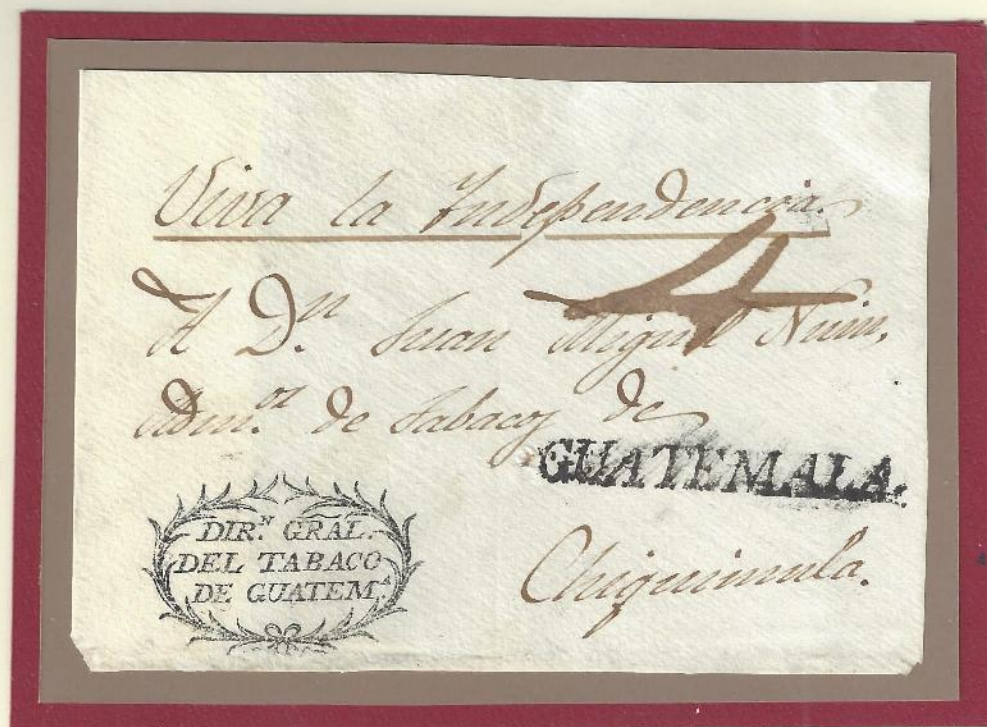 Viva la Independencia.
4
A Dn. Juan Miguel
Admor. de tabacos de
GUATEMALA.
Chiquimula.
DIR.N GRAL.
DEL TABACO
DE GUATEM.A